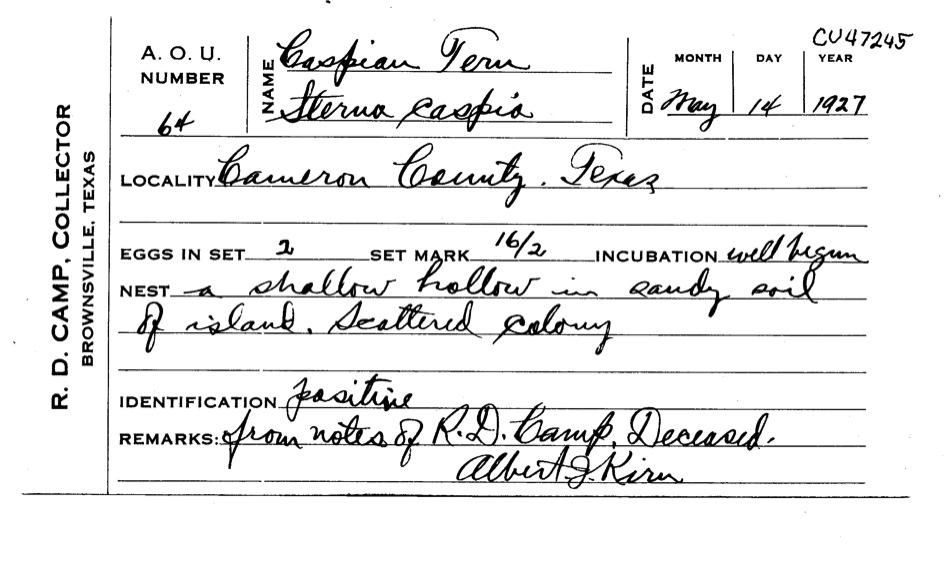 CU47245
A. O. U.
NUMBER
64
NAME Caspian Tern
Sterna caspia
DATE
MONTH DAY YEAR
May 14 1927
R. D. CAMP, COLLECTOR
BROWNSVILLE, TEXAS
LOCALITY Cameron County. Texas
EGGS IN SET 2 SET MARK 16/2 INCUBATION well begun
NEST a shallow hollow in sandy soil
of island. Scattered colony
IDENTIFICATION positive
REMARKS: from notes of R.D. Camp, Deceased.
Albert J. Kirn